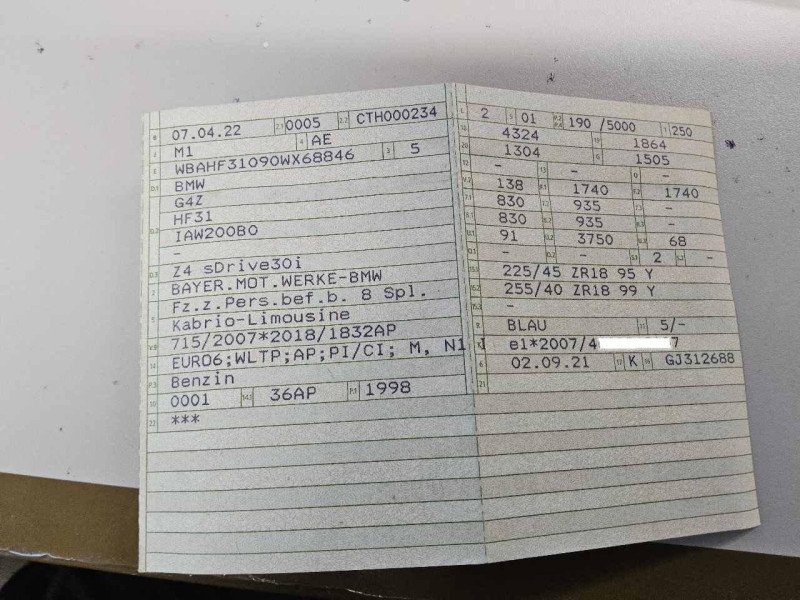 B 07.04.22 2.1 0005 2.2 CTH000234
J M1 4 AE
E WBAHF31090WX68846 3 5
D.1 BMW
G4Z
HF31
D.2 IAW200B0
-
D.3 Z4 sDrive30i
2 BAYER.MOT.WERKE-BMW
5 Fz.z.Pers.bef.b. 8 Spl.
Kabrio-Limousine
V.9 715/2007*2018/1832AP
14 EURO6;WLTP;AP;PI/CI; M, N1
P.3 Benzin
10 0001 14.1 36AP P.1 1998
22 ***
L 2 9 01 P.2 P.4 190 /5000 T 250
18 4324 19 1864
20 1304 G 1505
12 - 13 - Q -
V.7 138 F.1 1740 F.2 1740
7.1 830 7.2 935 7.3 -
8.1 830 8.2 935 8.3 -
U.1 91 U.2 3750 U.3 68
O.1 - O.2 - S.1 2 S.2 -
15.1 225/45 ZR18 95 Y
15.2 255/40 ZR18 99 Y
15.3 -
R BLAU 11 5/-
K e1*2007/4 7
6 02.09.21 17 K 16 GJ312688
21